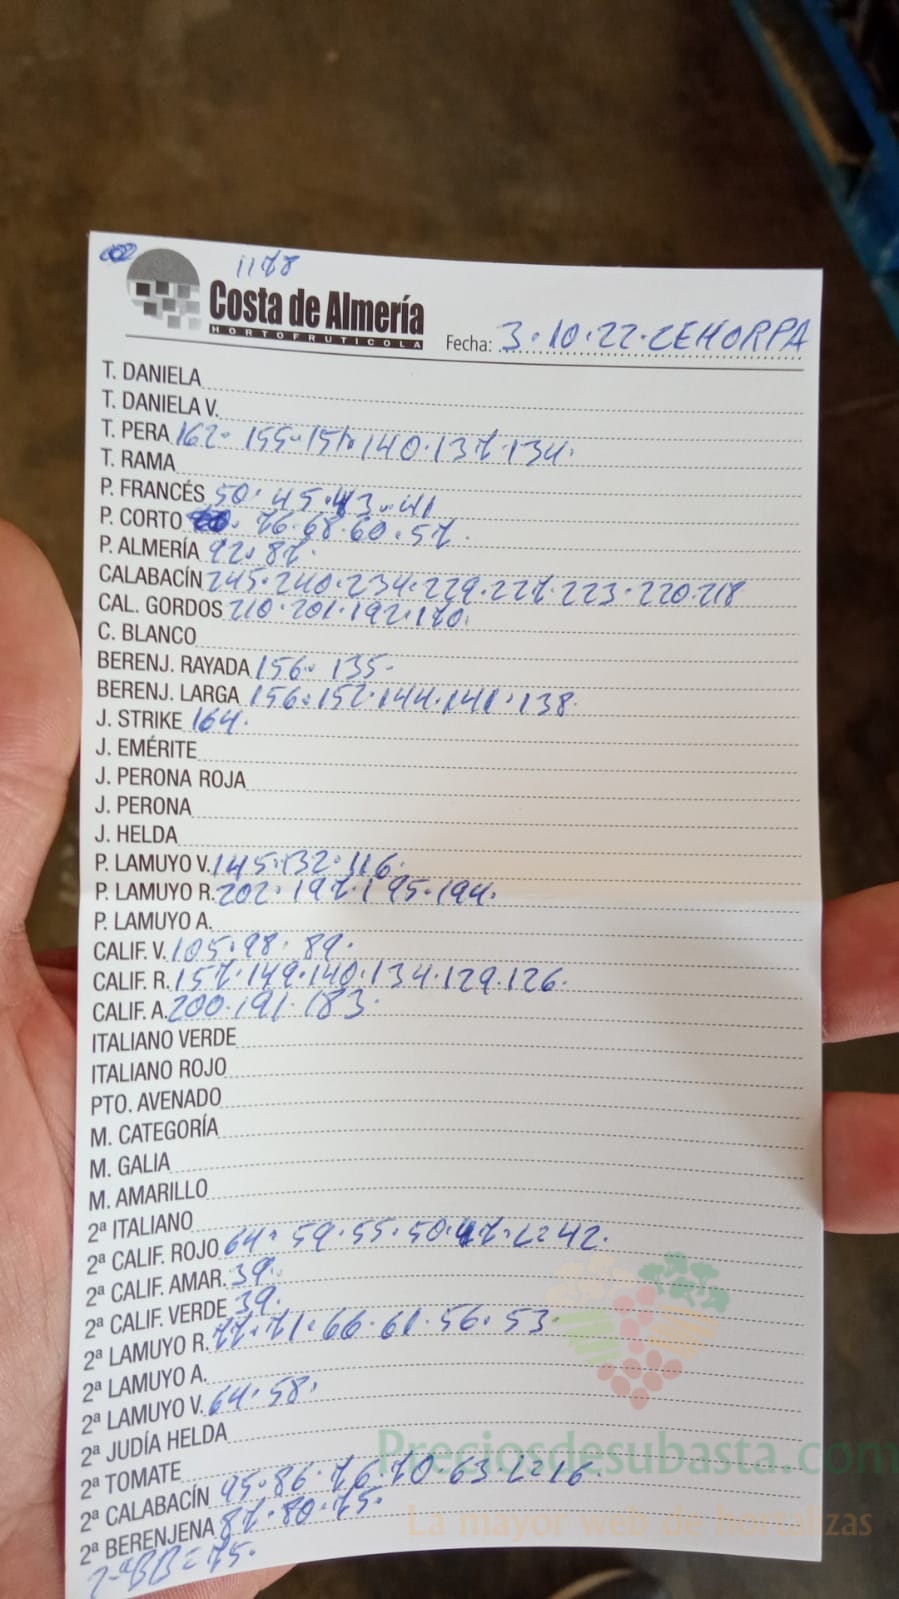 1178
Costa de Almería
HORTOFRUTICOLA
Fecha: 3.10.22.CEHORPA
T. DANIELA
T. DANIELA V.
T. PERA 162. 155.151.140.137.134.
T. RAMA
P. FRANCÉS 50. 45.43.41
P. CORTO 76.68.60.57.
P. ALMERÍA 92.87.
CALABACÍN 245.240.234.229.227.223.220.218
CAL. GORDOS 210.201.192.170.
C. BLANCO
BERENJ. RAYADA 156. 135.
BERENJ. LARGA 156.152.144.141.138.
J. STRIKE 164.
J. EMÉRITE
J. PERONA ROJA
J. PERONA
J. HELDA
P. LAMUYO V. 145.132.116.
P. LAMUYO R. 202.197.195.194.
P. LAMUYO A.
CALIF. V. 105.98.89.
CALIF. R. 157.149.140.134.129.126.
CALIF. A. 200.191.183.
ITALIANO VERDE
ITALIANO ROJO
PTO. AVENADO
M. CATEGORÍA
M. GALIA
M. AMARILLO
2ª ITALIANO
2ª CALIF. ROJO 64. 59.55.50.47. 42.
2ª CALIF. AMAR. 39.
2ª CALIF. VERDE 39.
2ª LAMUYO R. 77.71.66.61.56.53.
2ª LAMUYO A.
2ª LAMUYO V. 64.58.
2ª JUDÍA HELDA
2ª TOMATE
2ª CALABACÍN 95.86.76.70.63. 16
2ª BERENJENA 87.80.75.
2ªBB=75.
Preciosdesubasta.com
La mayor web de hortalizas